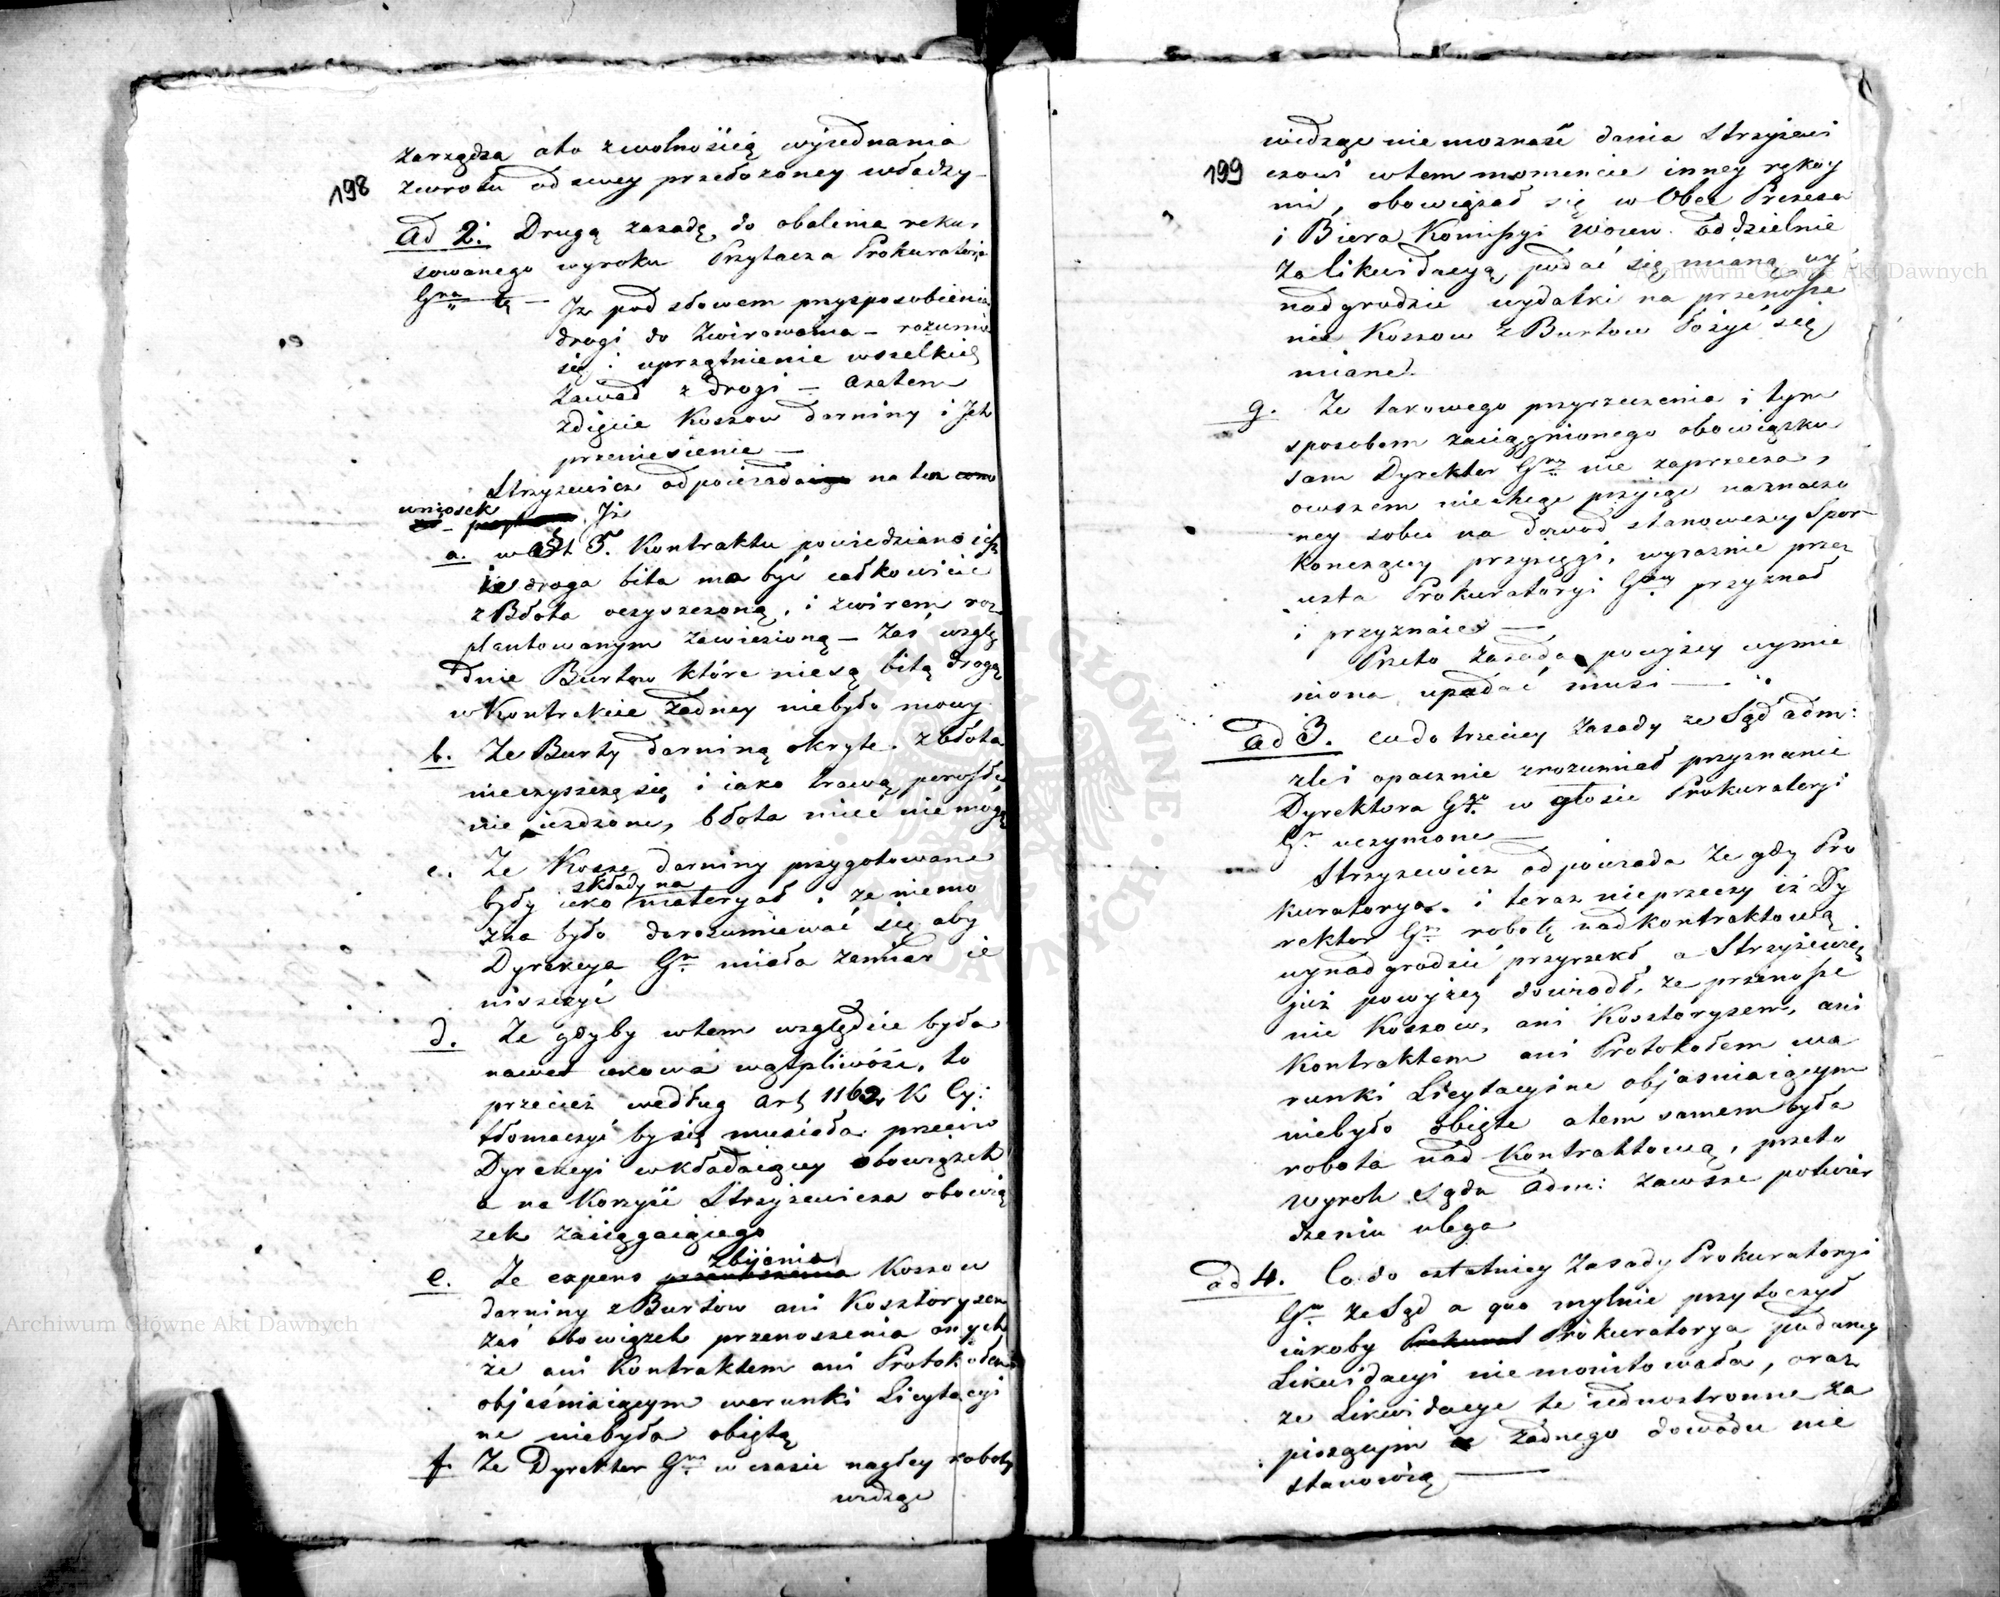 198
zarządza ato zwolnością wyiednania
zwrotu od swey przełożoney władzy
Ad 2. Drugą zasadę do obalenia rekur
sowanego wyroku Przytacza Prokuratorya
Gna tę —
Iż pod słowem przysposobienia
drogi do Zwirowania — rozumie
się i uprzątnienie wszelkich
zawad z drogi — azatem
zdięcie Koszow darniny i Ich
przeniesienie —
Strzyzewicz odpowiada na ten
wniosek Iż
a. w Art 5. Kontraktu powiedziano iż
droga bita ma być całkowicie
z Błota oczyszczoną, i zwirem roz
plantowanym zawiezioną — Zaś wzglę
dnie Burtow które niesą bitą drogą
w Kontrakcie Żadney niebyło mowy
b. Ze Burty darniną okryte z błota
nieczyszczą się i iako trawą porosłe
nie iezdzone, błota mieć nie mogą
c. Ze Kosze darniny przygotowane
były iako składy na materyał, ze niemo
zna było dorozumiewać się aby
Dyrekcya Gna miała zamiar ie
niszczyć
d. Ze gdyby wtem względzie była
nawet iakowa wątpliwość, to
przecież według Art 1162 K Cy:
tłomaczyć by się musiała przeciw
Dyrekcyi wkładaiącey obowiązek
a na Korzyść Strzyzewicza obowią
zek zaciągaiącego
e. Ze expens zbijania Koszow
darniny z Burtów ani Kosztorysem
zaś obowiązek przenoszenia onych
że ani Kontraktem ani Protokołem
objaśniaiącym warunki Licytacyi
ne niebyła obiętą
f. Ze Dyrektor Gny w czasie nagłey roboty
widząc
199
widząc niemożność dania Strzyżewi
czowi wtem momencie inney rękoy
mi, obowiązał się w Obec Prezesa
i Biura Kommissyi Woiew. oddzielnie
za likwidacyą podać się mianą wy
nadgrodzie wydatki na przenosze
nie Koszow z Burtow łożyć się
miane.
g. Ze takowego przyrzeczenia i tym
sposobem zaciągnionego obowiązku
sam Dyrektor Gny nie zaprzecza,
owszem niechcąc przyiąć naznaczo
ney sobie na dowód stanowczy Spor
Konczącey przysięgi, wyraźnie przez
usta Prokuratoryi Gney przyznał
i przyznaie —
Przeto zasada powyżey wymie
niona upadać musi —
Ad 3. co do trzeciey zasady ze Sąd adm:
zle i opacznie zrozumiał przyznanie
Dyrektora Ggo w głosie Prokuratoryi
Gy uczynione —
Strzyzewicz odpowiada Ze gdy Pro
kuratorya i teraz nieprzeczy iż Dy
rektor Gny robotę nadkontraktową
wynadgrodzić przyrzekł a Strzyżewicz
już powyżey dowiodł, ze przenosze
nie Koszow, ani Kosztorysem, ani
Kontraktem ani Protokołem wa
runki Licytacyine objasniaiącym
niebyło obięte atem samem była
robota nad Kontraktową, przeto
wyrok Sądu adm: zawsze potwier
dzeniu ulega
ad 4. Co do ostatniey Zasady Prokuratoryi
Gn ze Sąd a quo mylnie przytoczył
iakoby Prokuratorya podaney
Likwidacyi niemonitowała, oraz
ze Likwidacye te iednostronne za
piszącym żadnego dowodu nie
stanowią —
Archiwum Główne Akt Dawnych
Archiwum Główne Akt Dawnych